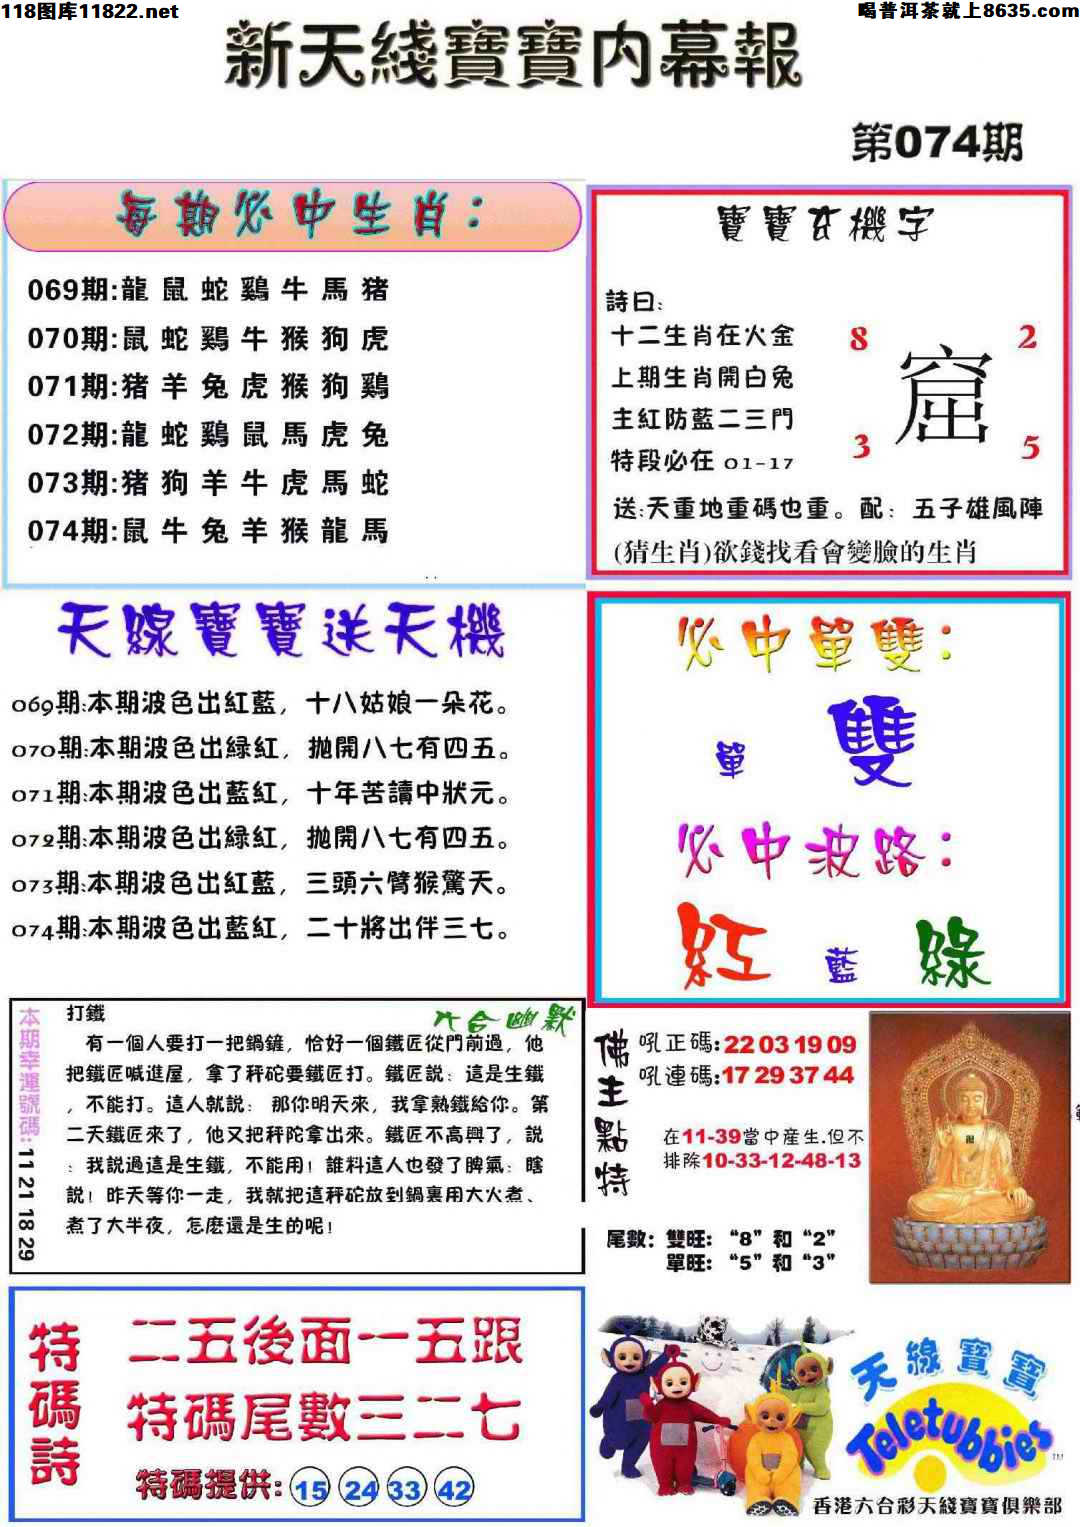 118图库11822.net
喝普洱茶就上8635.com
新天綫寶寶内幕報
第074期
每期必中生肖：
069期:龍鼠蛇鷄牛馬猪
070期:鼠蛇鷄牛猴狗虎
071期:猪羊兔虎猴狗鷄
072期:龍蛇鷄鼠馬虎兔
073期:猪狗羊牛虎馬蛇
074期:鼠牛兔羊猴龍馬
寶寶玄機字
詩曰:
十二生肖在火金
上期生肖開白兔
主紅防藍二三門
特段必在 01-17
8
2
窟
3
5
送:天重地重碼也重。配：五子雄風陣
(猜生肖)欲錢找看會變臉的生肖
天線寶寶送天機
069期:本期波色出紅藍，十八姑娘一朵花。
070期:本期波色出緑紅，抛開八七有四五。
071期:本期波色出藍紅，十年苦讀中狀元。
072期:本期波色出緑紅，抛開八七有四五。
073期:本期波色出紅藍，三頭六臂猴驚天。
074期:本期波色出藍紅，二十將出伴三七。
必中單雙：
單
雙
必中波路：
紅
藍
綠
本期幸運號碼: 11 21 18 29
六合幽默
打鐵
有一個人要打一把鍋鏟，恰好一個鐵匠從門前過，他
把鐵匠喊進屋，拿了秤砣要鐵匠打。鐵匠説：這是生鐵
，不能打。這人就説： 那你明天來，我拿熟鐵給你。第
二天鐵匠來了，他又把秤陀拿出來。鐵匠不高興了，説
：我説過這是生鐵，不能用！誰料這人也發了脾氣：瞎
説！昨天等你一走，我就把這秤砣放到鍋裏用大火煮、
煮了大半夜，怎麽還是生的呢！
佛主點特
吼正碼:22 03 19 09
吼連碼:17 29 37 44
在11-39當中産生.但不
排除10-33-12-48-13
尾數：雙旺：“8”和“2”
單旺：“5”和“3”
特碼詩
二五後面一五跟
特碼尾數三二七
特碼提供: 15 24 33 42
天線寶寶
Teletubbies
TM
香港六合彩天綫寶寶俱樂部